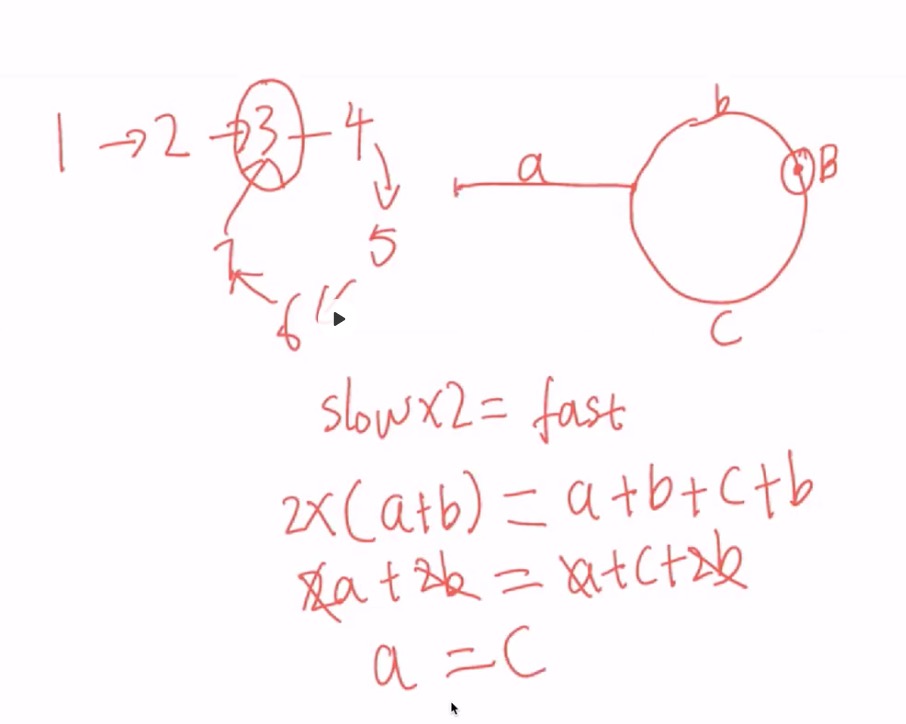 1 → 2 → 3 — 4
5
6
7
b
a
B
C
slow x2 = fast
2x(a+b) = a+b+c+b
2a + 2b = a+c+2b
a = C